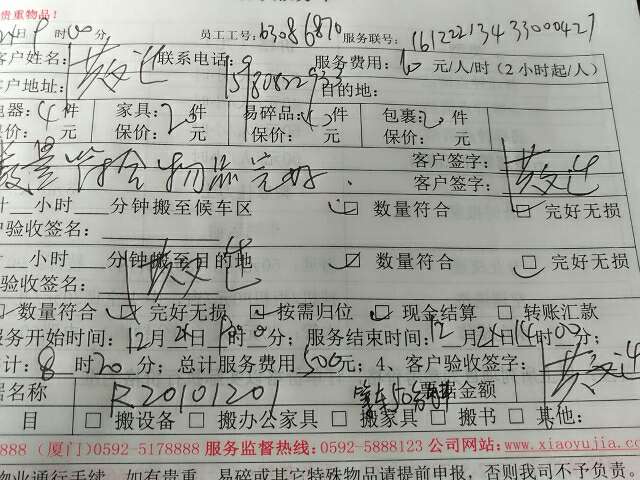 贵重物品！
24日 9时00分， 员工工号：63086870 服务联号：16122213433000427
客户姓名： 联系电话：15980822933 服务费用： 元/人/时（2小时起/人）
客户地址： 目的地：
电器：4件 家具：2件 易碎品： 件 包裹：2件
保价： 元 保价： 元 保价： 元 保价： 元
数量符合物品完好. 客户签字：
客户签字：
计 小时 分钟搬至候车区 数量符合 完好无损
客户验收签名：
小时 分钟搬至目的地 数量符合 完好无损
验收签名：
数量符合 完好无损 按需归位 现金结算 转账汇款
服务开始时间：12月24日 时00分；服务结束时间：12月24日14时00分；
计：8时20分；总计服务费用500元；4、客户验收签字：
据名称 R20101201 票据金额
目 搬设备 搬办公家具 搬家具 搬书 其他：
888（厦门）0592-5178888 服务监督热线：0592-5888123 公司网站：www.xiaoyujia.com
物业通行手续，如有贵重、易碎或其它特殊物品请提前申报，否则我司不予负责。